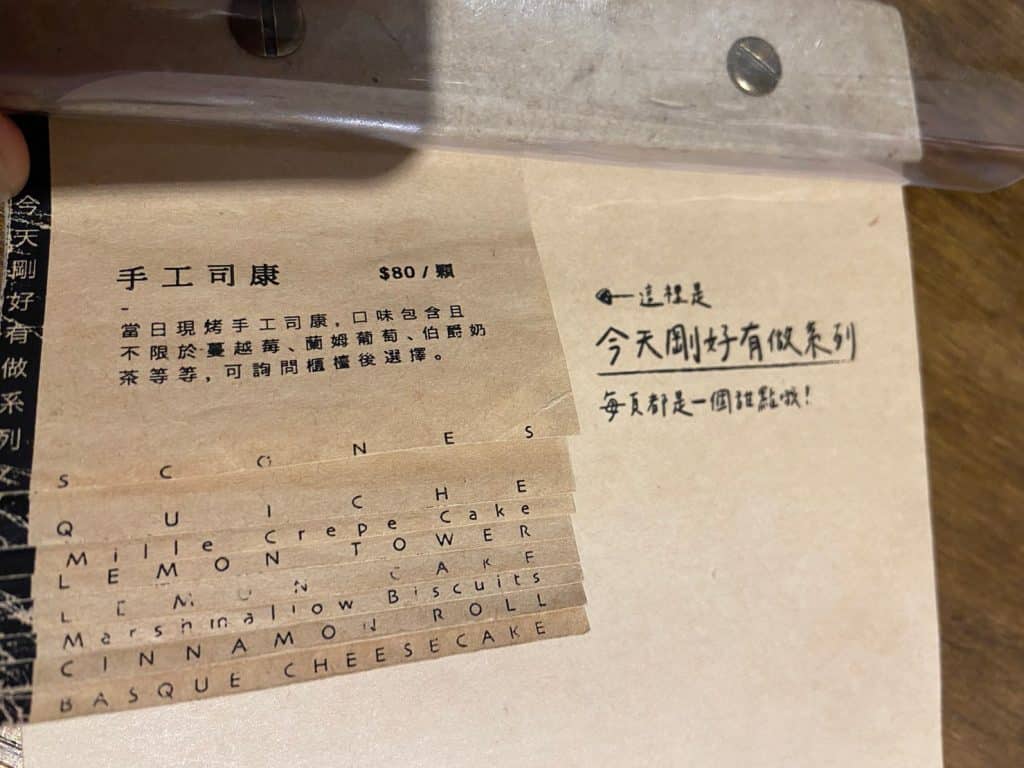 今天剛好有做系列
手工司康 $80 / 顆
-
當日現烤手工司康，口味包含且
不限於蔓越莓、蘭姆葡萄、伯爵奶
茶等等，可詢問櫃檯後選擇。
SCONES
QUICHE
Mille Crepe Cake
LEMON TOWER
LEMON CAKE
Marshmallow Biscuits
CINNAMON ROLL
BASQUE CHEESECAKE
←這裡是
今天剛好有做系列
每頁都是一個甜點哦！